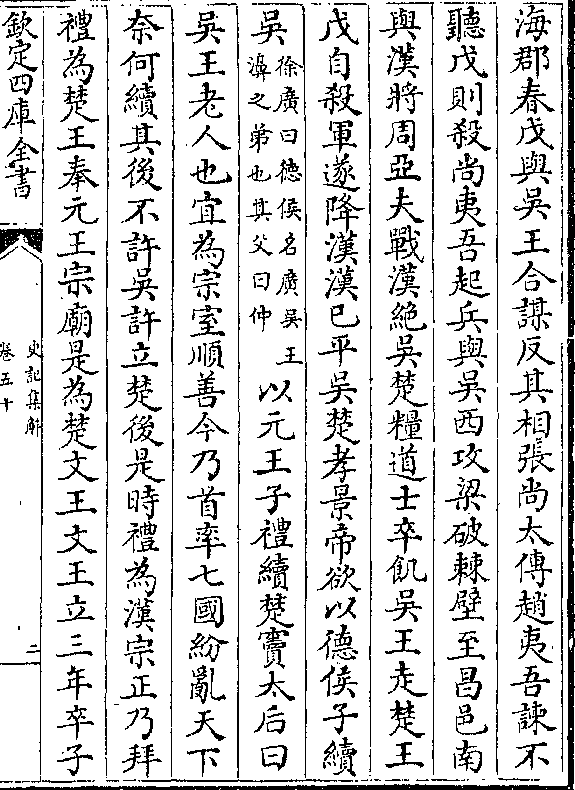 海郡春戊與吳王合謀反其相張尚太傅趙夷吾諫不
聽戊則殺尚夷吾起兵與吳西攻梁破棘壁至昌邑南
與漢將周亞夫戰漢絶吳楚糧道士卒飢吳王走楚王
戊自殺軍遂降漢漢已平吳楚孝景帝欲以德侯子續
吳徐廣曰德侯名廣吳王濞之弟也其父曰仲以元王子禮續楚竇太后曰
吳王老人也宜為宗室順善今乃首率七國紛亂天下
奈何續其後不許吳許立楚後是時禮為漢宗正乃拜
禮為楚王奉元王宗廟是為楚文王文王立三年卒子
欽定四庫全書
史記集解
卷五十
二